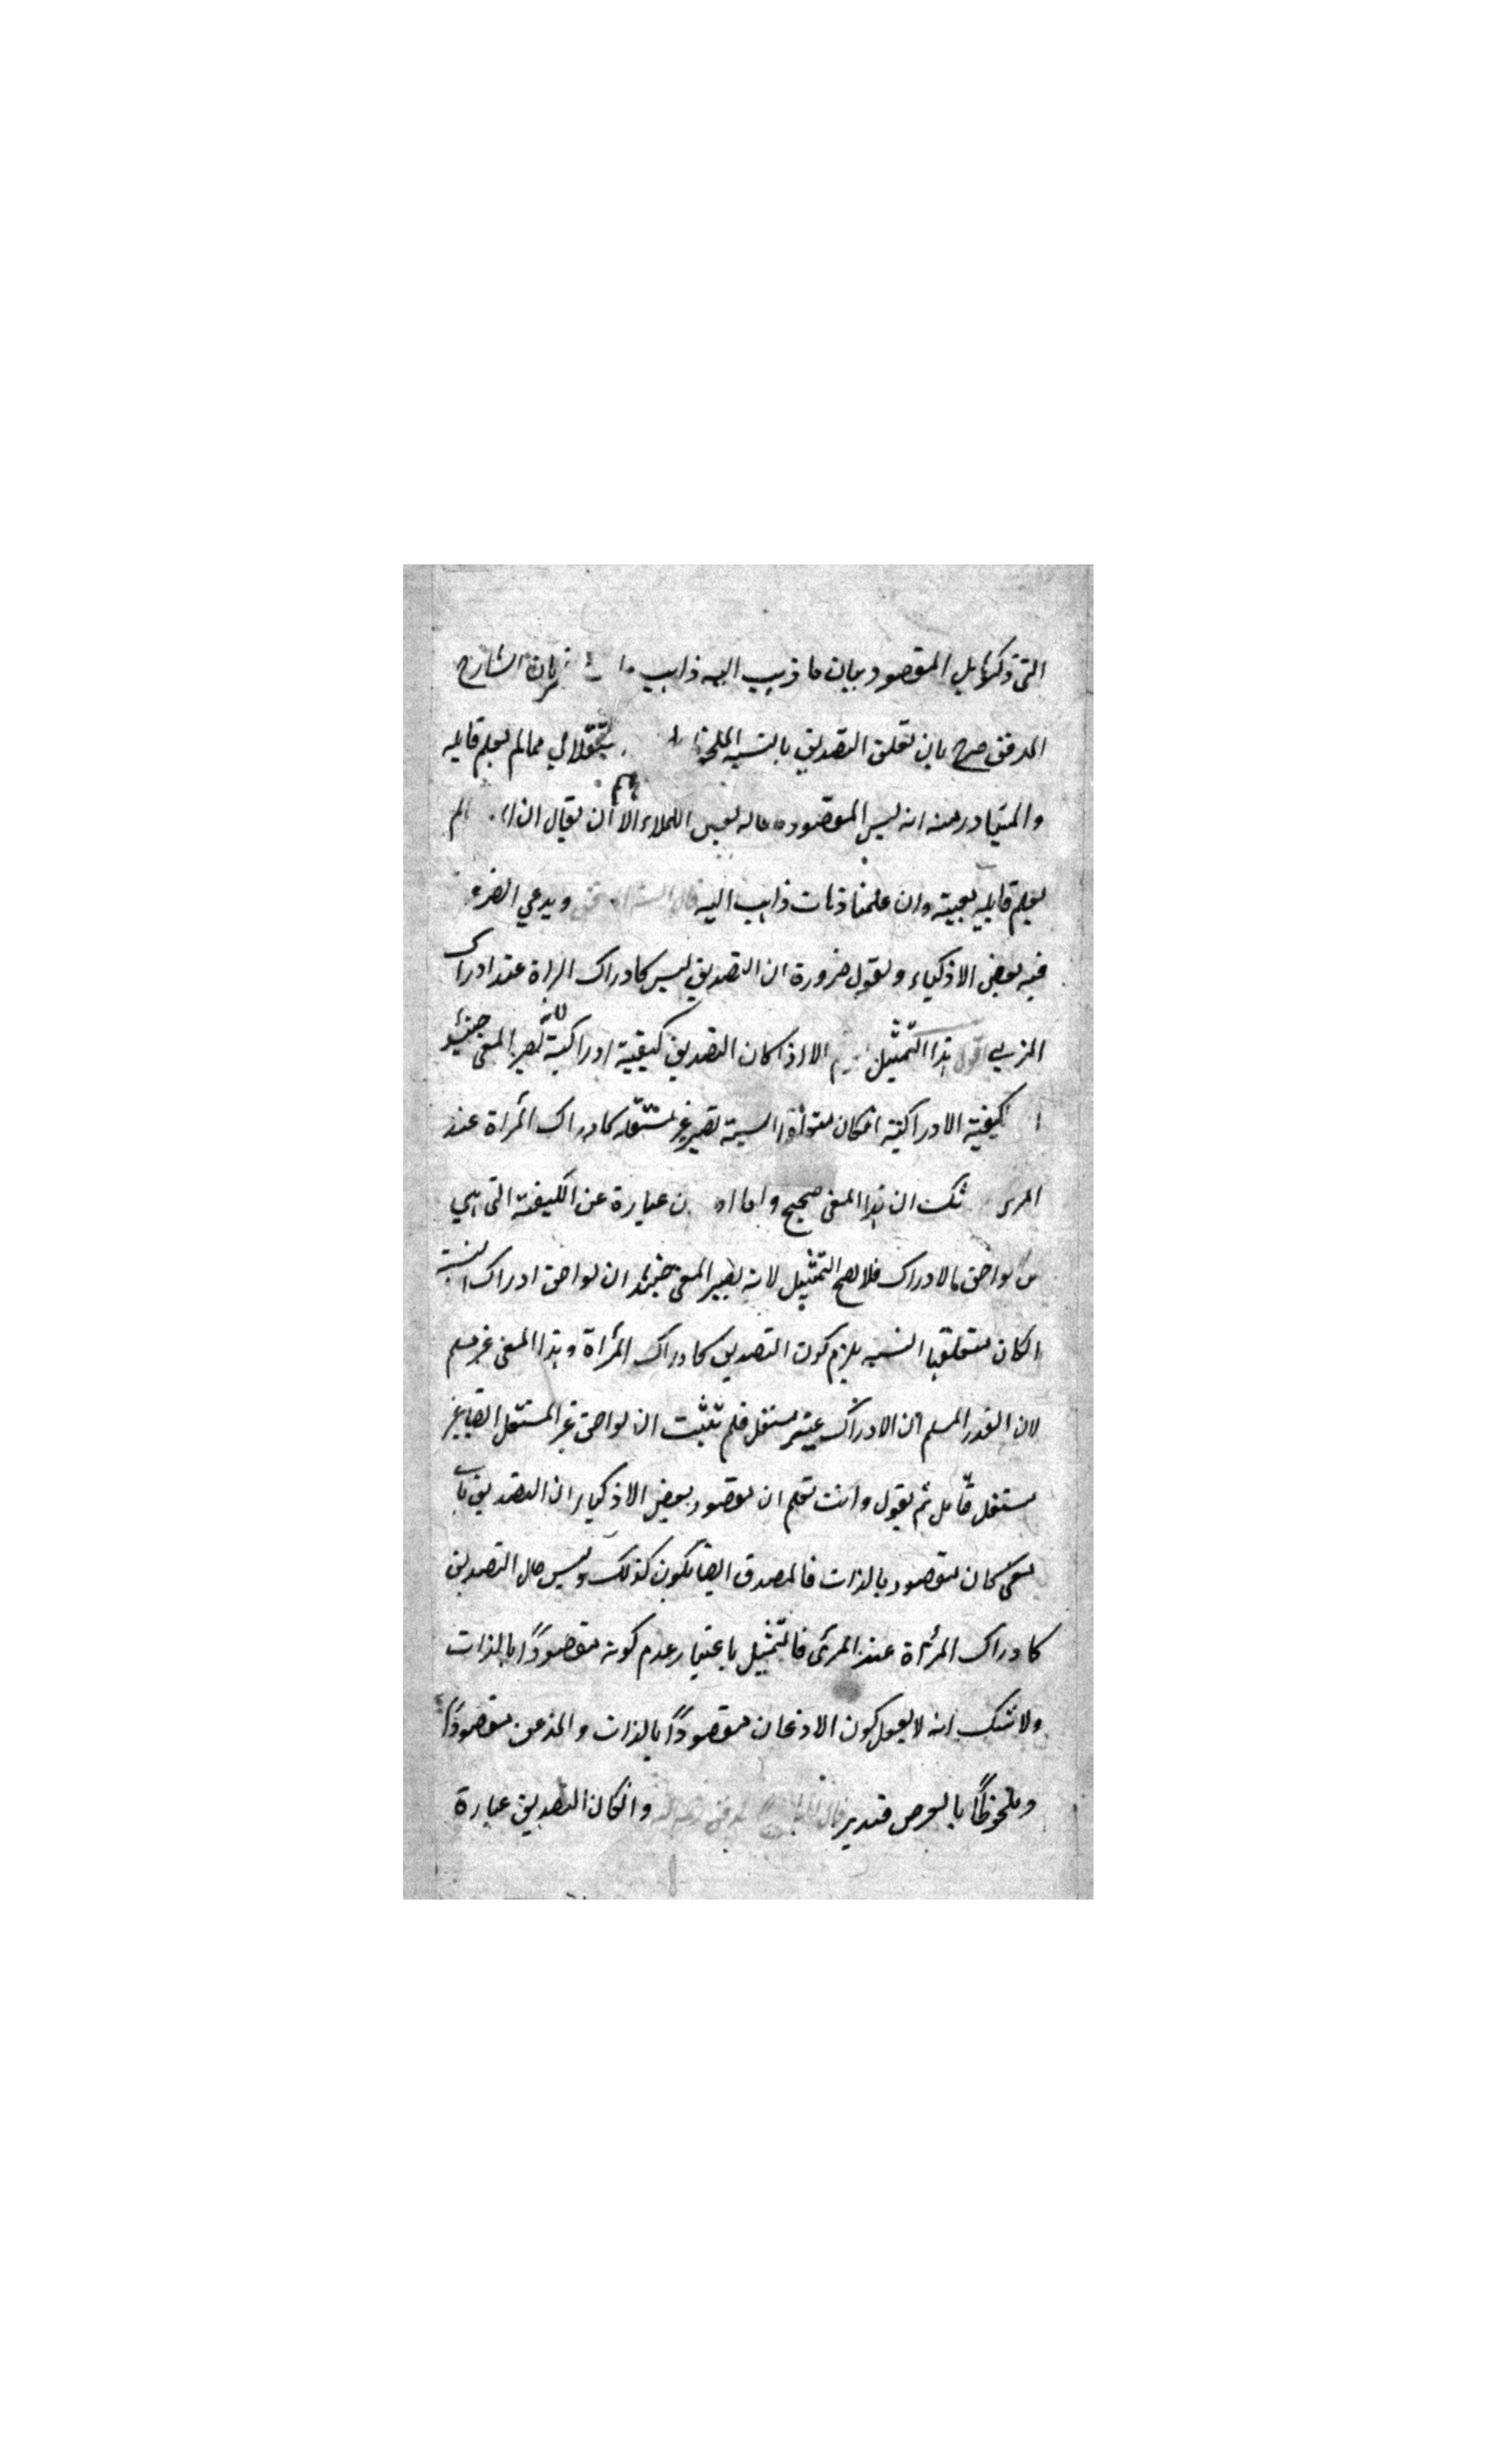 التى ذكرتا بل المقصود بيان ما ذهب اليه ذاهب ثم بان الشارح
المدقق صرح بان تعلق التصديق بالنسبة الملحوظة استقلالا لي مما لم يعلم قايله
والمتبادر منه انه ليس المقصود ما قاله بعض الفضلاء الا ان يقال انا لم
يعلم قايله بعينه وان علمنا ذات ذاهب اليه قال الشارح المدقق ويدعي الضرورة
فيه بعض الاذكياء ويقول ضرورة ان التصديق ليس كادراك المراة عند ادراك
المرئي اقول هذا التمثيل الا اذا كان التصديق كيفية ادراكية لانه يصير المعنى حينئذ
الكيفية الادراكية انكان متعلقها النسبة تصير غير مستقلة كادراك المرأة عند
المرئي شك ان هذا المعنى صحيح واما عبارة عن الكيفية التى هي
من لواحق الادراك فلا يصح التمثيل لانه يصير المعنى حينئذ ان لواحق ادراك النسبة
انكان متعلقها النسبة يلزم كون التصديق كادراك المرأة وهذا المعنى غير مسلم
لان القدر المسلم ان الادراك غير مستقل فلم تثبت ان لواحق غير المستقل ايضا غير
مستقل فتأمل ثم يقول وانت تعلم ان مقصود بعض الاذكياء ان التصديق باى
معنى كان مقصود بالذات فالمصدق ايضا يكون كذلك وليس حال التصديق
كادراك المرأة عند المرئى فالتمثيل باعتبار عدم كونه مقصودًا بالذات
ولا شك انه لا يعقل كون الاذعان مقصودًا بالذات والمذعن مقصودًا
وملحوظًا بالعرض فتدبر قال المدقق وانكان التصديق عبارة